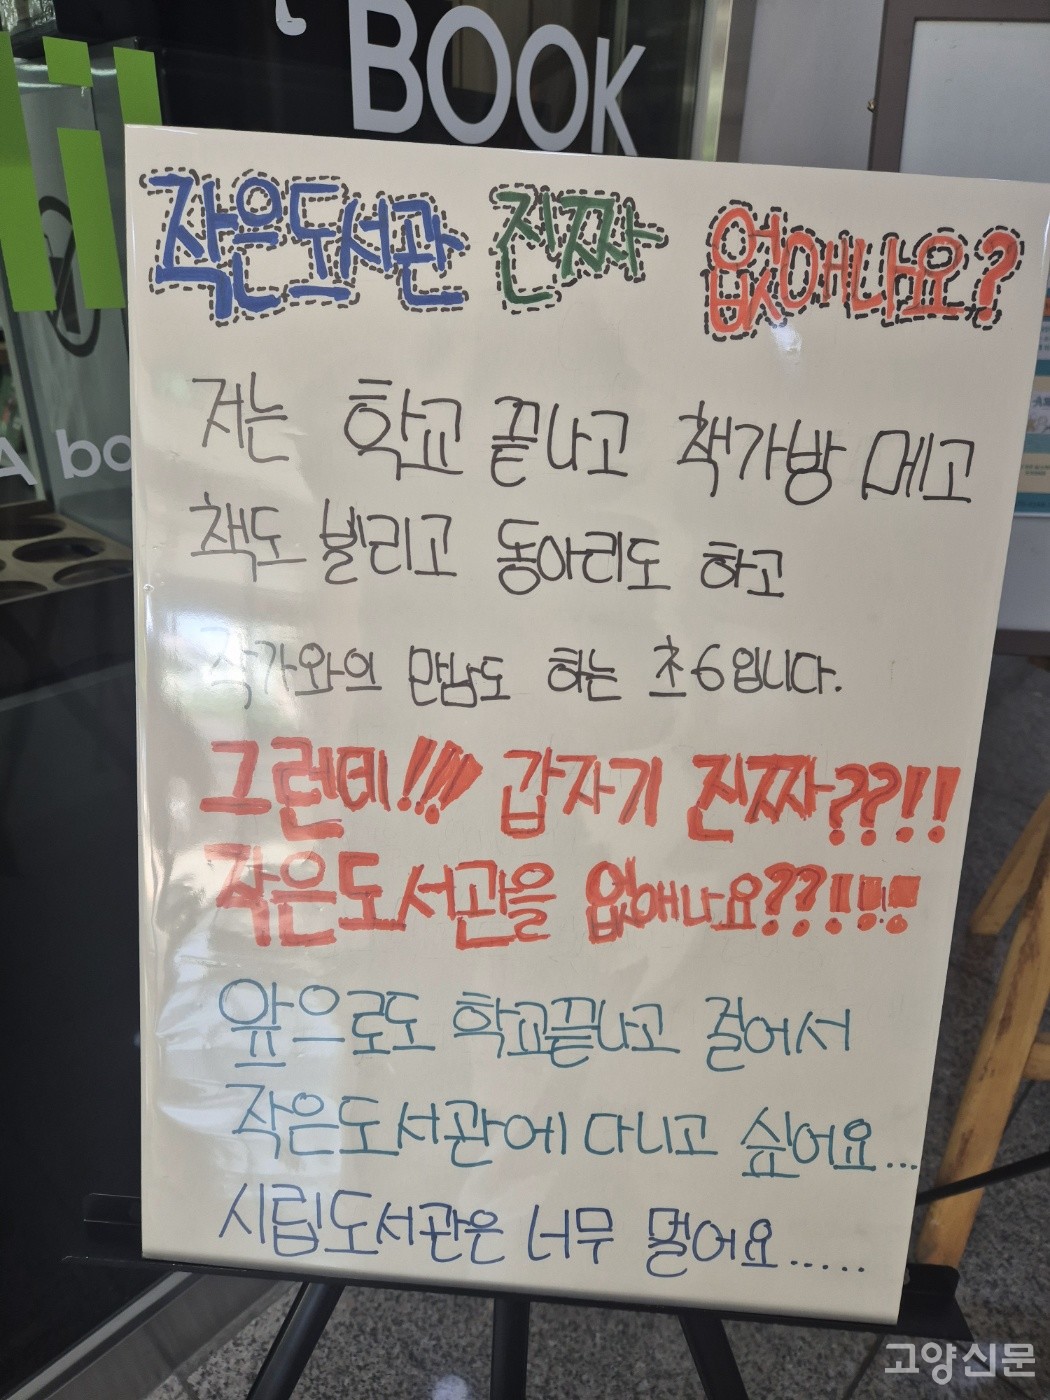 BOOK
작은도서관 진짜 없애나요?
저는 학교 끝나고 책가방 메고
책도 빌리고 동아리도 하고
작가와의 만남도 하는 초6입니다.
그런데!!! 갑자기 진짜??!!
작은도서관을 없애나요??!!!!
앞으로도 학교끝나고 걸어서
작은도서관에 다니고 싶어요...
시립도서관은 너무 멀어요.....
A bo
고양신문